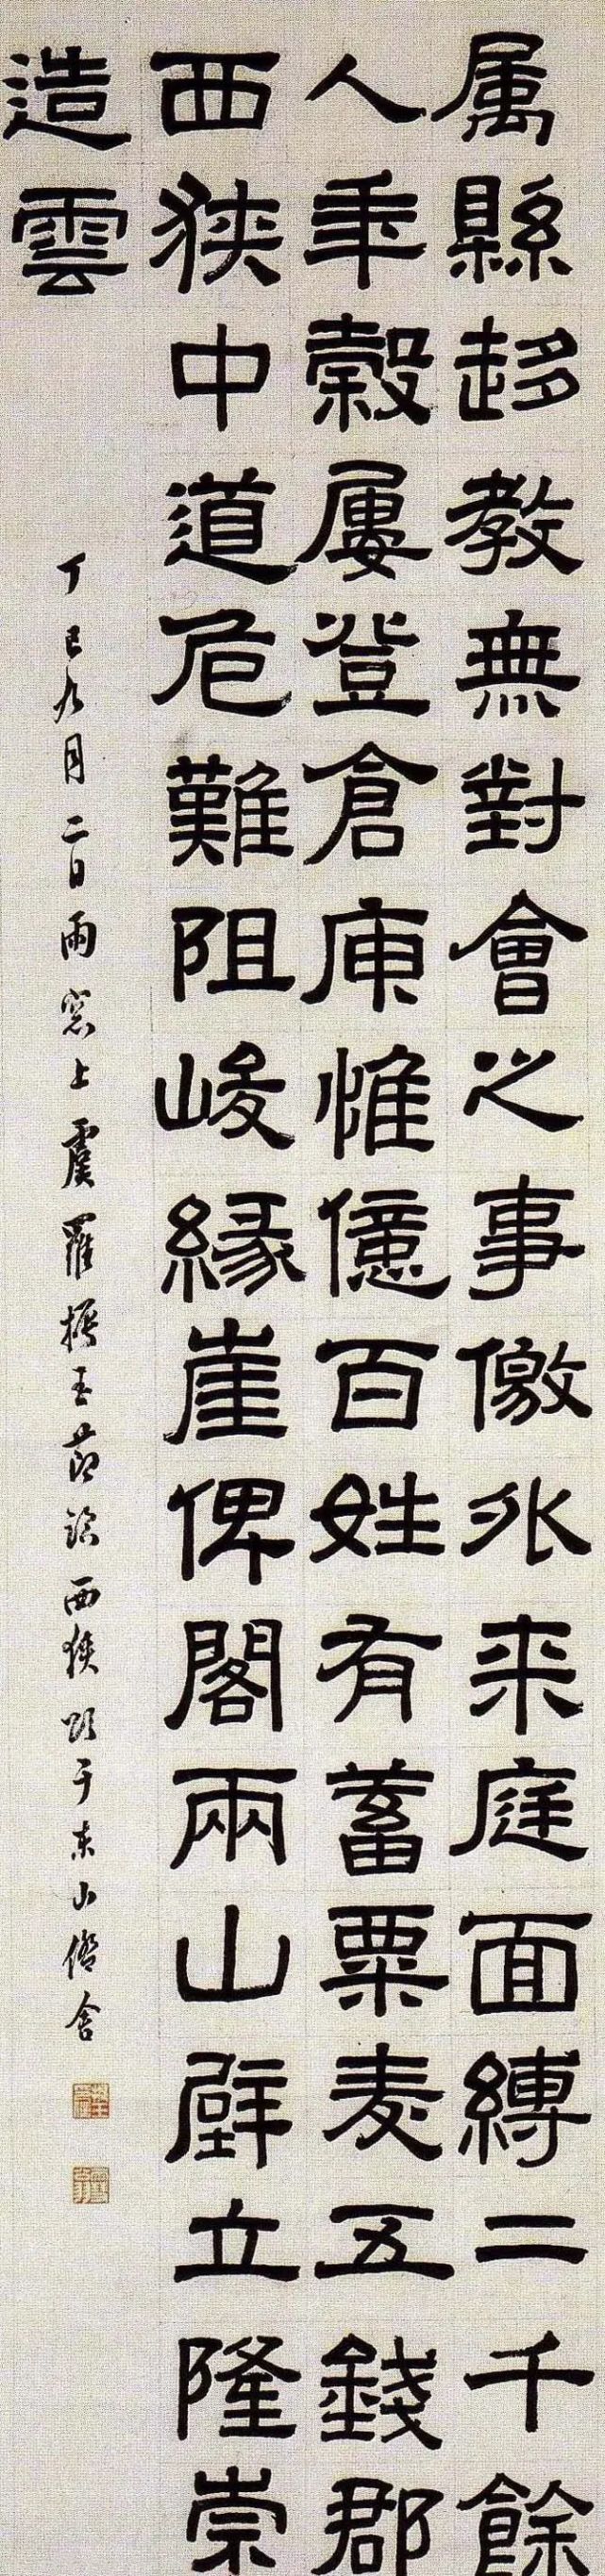 属縣趍教無對會之事儌外来庭面縛二千餘
人年榖屢登倉庾惟億百姓有蓄粟麦五錢郡
西狹中道危難阻峻緣崖俾閣兩山壁立隆崇
造雲
丁巳九月二日雨窓上虞羅振玉節臨西狹頌于東山僑舍